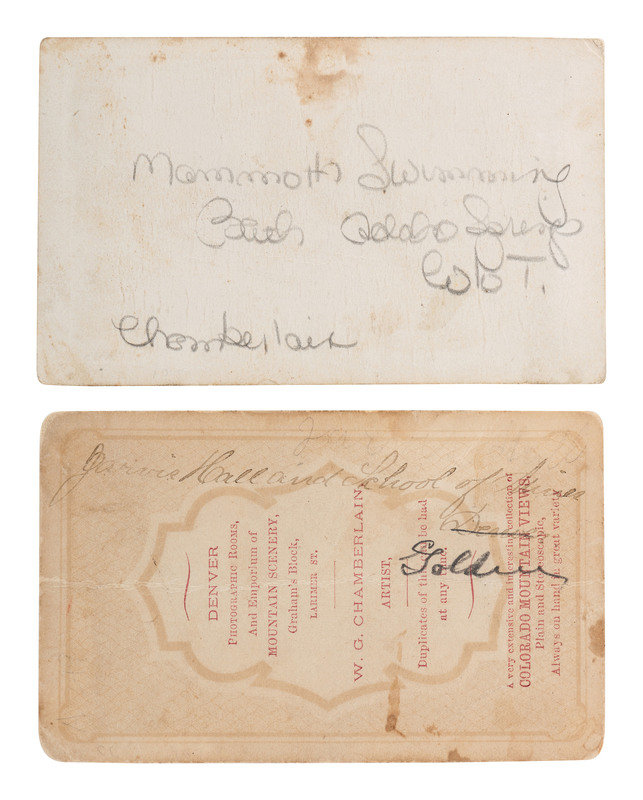 Mammoth Swimming
Bath Idaho Springs
Colo T.
Chamberlain
Jarvis Hall and School of Mines
Denver
Golden
DENVER
PHOTOGRAPHIC ROOMS,
And Emporium of
MOUNTAIN SCENERY,
Graham's Block,
LARIMER ST.
W. G. CHAMBERLAIN,
ARTIST,
Duplicates of this can be had
at any time
A very extensive and interesting collection of
COLORADO MOUNTAIN VIEWS,
Plain and Stereoscopic,
Always on hand in great variety